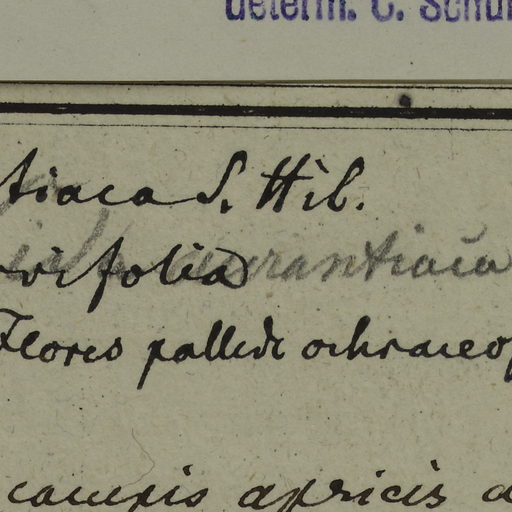 determ. C. Schu
tiaca S. Hil.
aurantiaca
folia
Flores pallide ochraceo
campis apricis